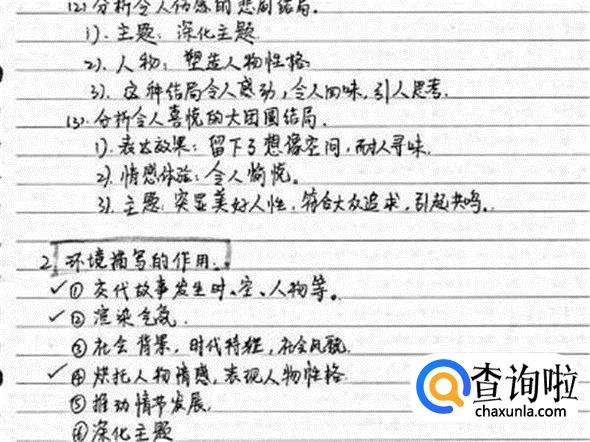 (2).分析令人伤感的悲剧结局.
1).主题:深化主题
2).人物:塑造人物性格
3).这种结局令人感动,令人回味,引人思考.
(3).分析令人喜悦的大团圆结局.
1).表达效果:留下了想像空间,耐人寻味.
2).情感体验:令人愉悦。
3).主题:突显美好人性,符合大众追求,引起共鸣.
2.环境描写的作用.
✓①交代故事发生时、空、人物等。
✓②渲染气氛.
③社会背景,时代特征,社会风貌.
✓④烘托人物情感,表现人物性格.
⑤推动情节发展.
⑥深化主题
查询啦
chaxunla.com